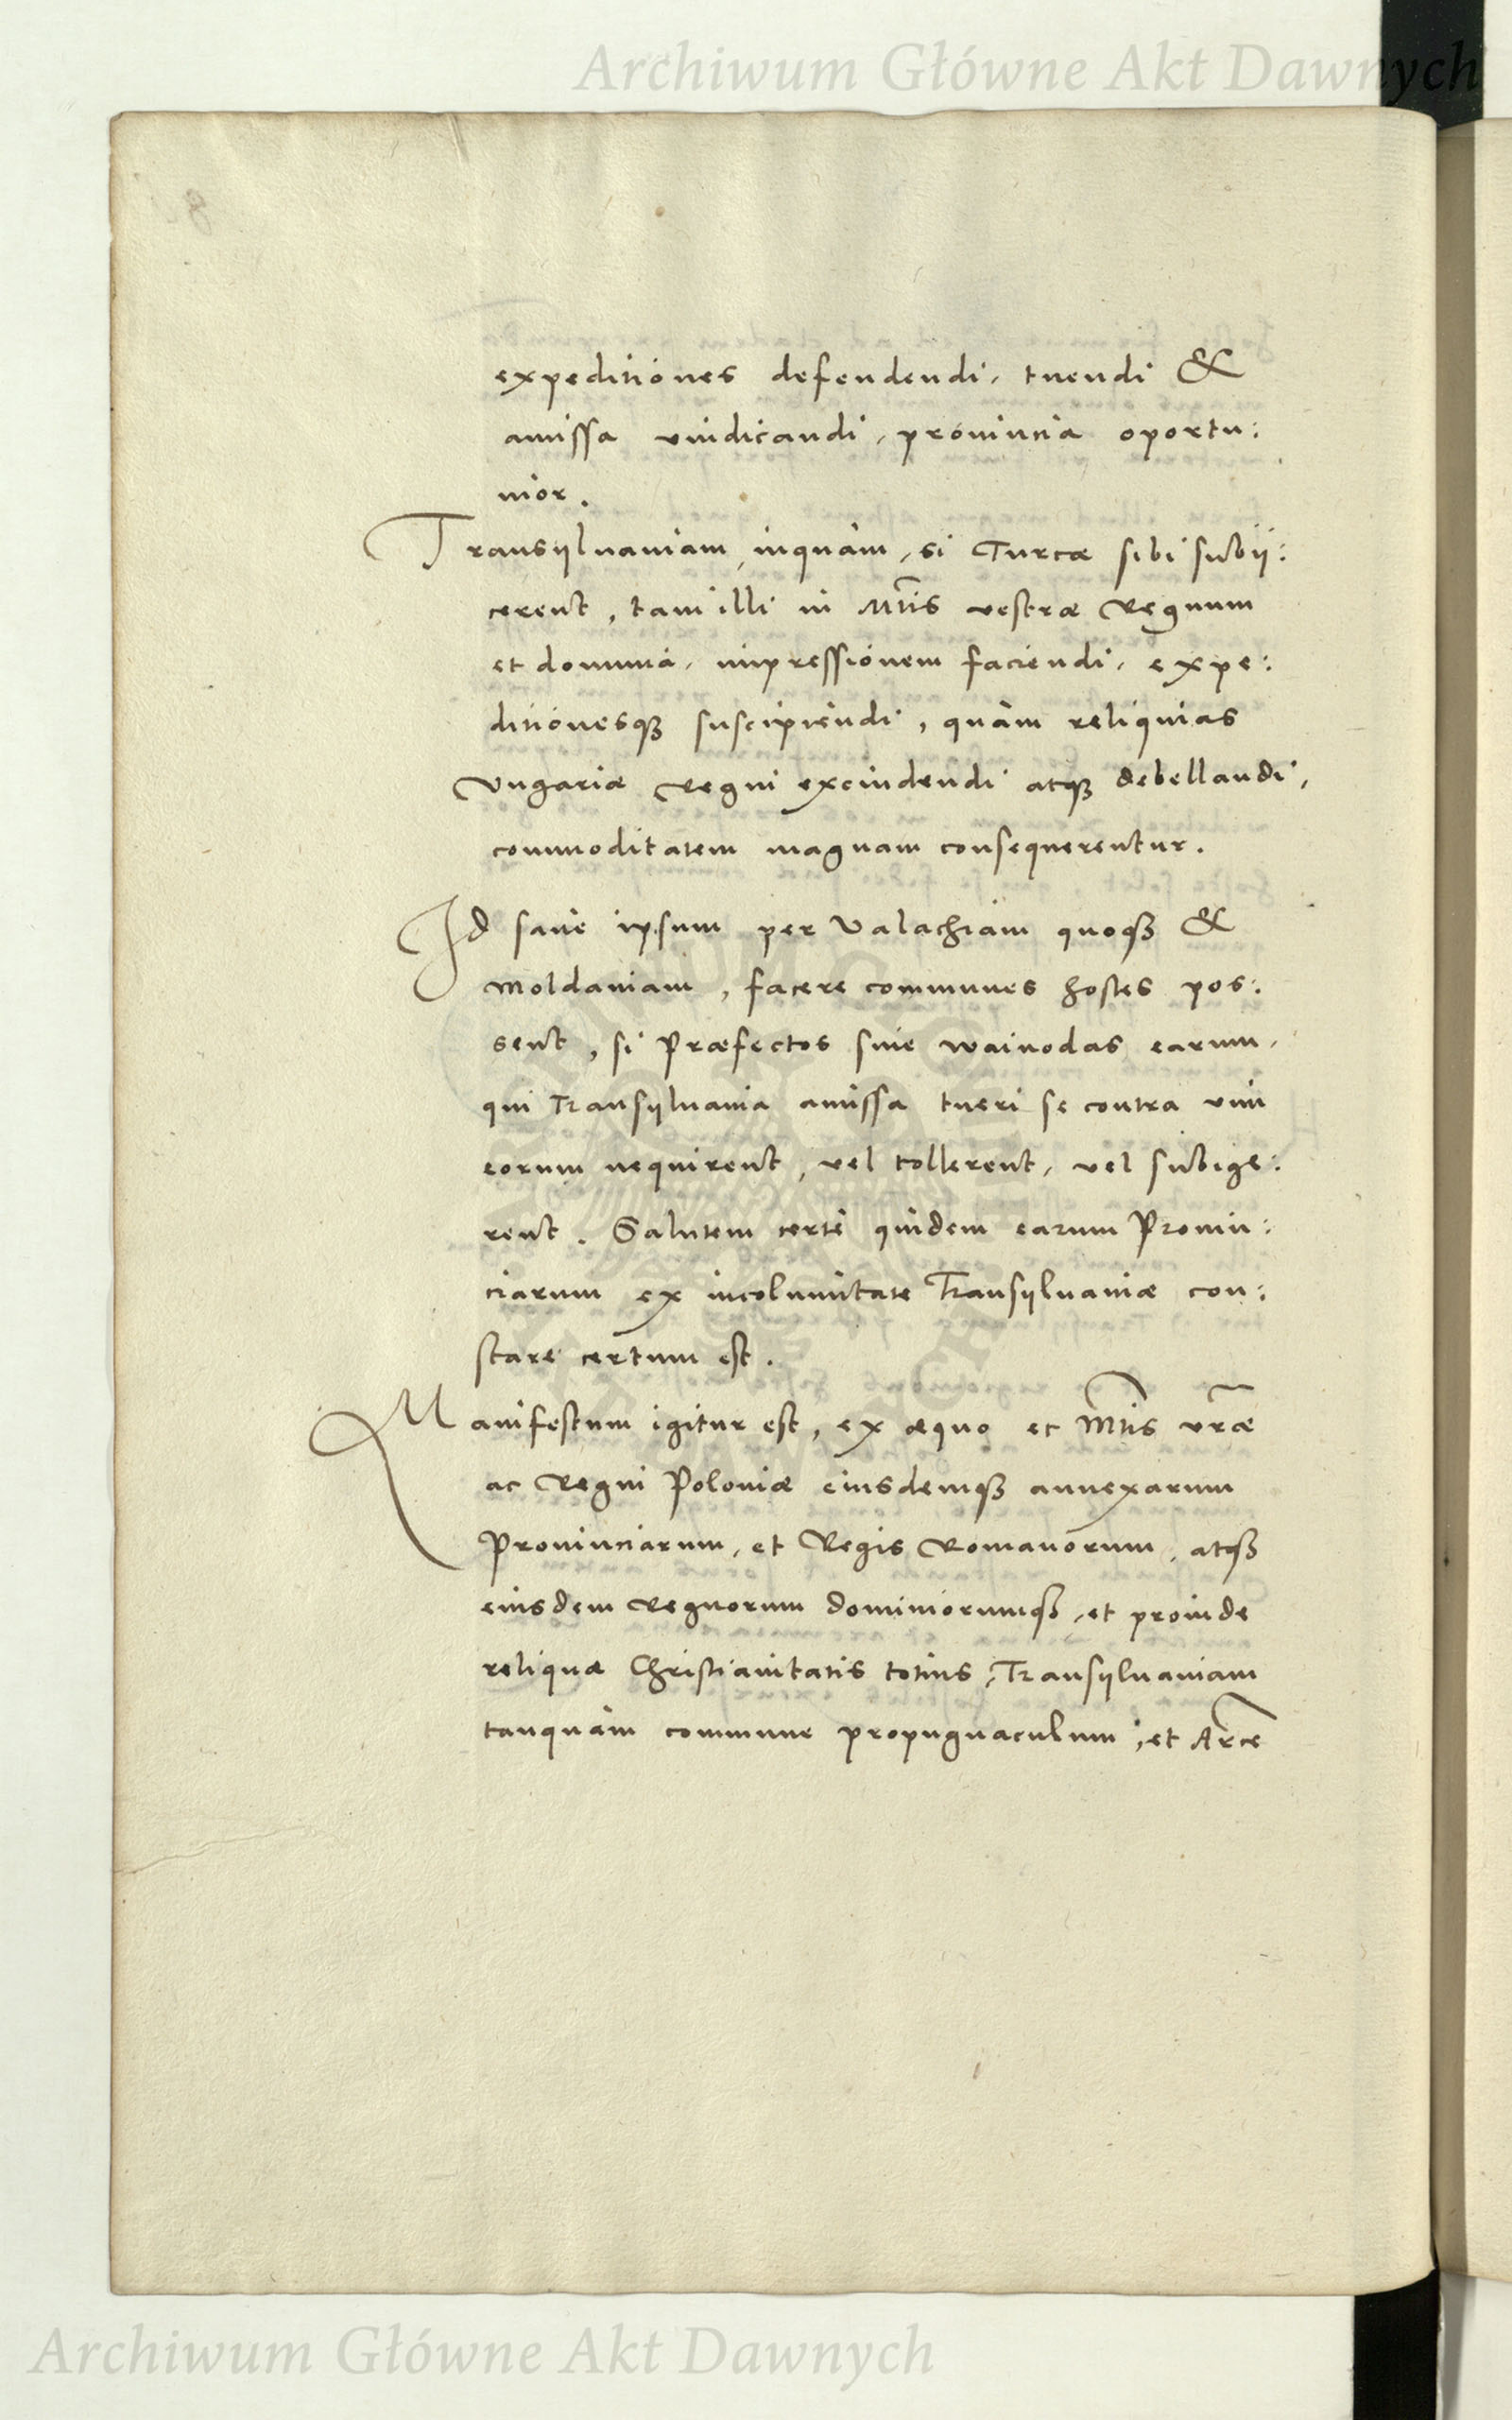 Archiwum Główne Akt Dawnych
expeditiones defendendi, tuendi &
amissa vindicandi, prouincia oportu:
nior.
Transyluaniam, inquam, si Turcæ sibi subij:
cerent, tam illi in Mtis vestræ Regnum
et dominia, impressionem faciendi, expe:
ditionesqꝫ suscipiendi, quàm reliquias
Vngariæ Regni excindendi atqꝫ debellandi,
commoditatem magnam consequerentur.
Id sane ipsum per Valachiam quoqꝫ &
Moldauiam, facere communes hostes pos:
sent, si Præfectos siue waiuodas earum,
qui Transyluania amissa tueri se contra vim
eorum nequirent, vel tollerent, vel subige:
rent. Salutem certè quidem earum Prouin:
ciarum ex incolumitate Transyluaniæ con:
stare certum est.
Manifestum igitur est, ex æquo et Mtis vræ
ac Regni Poloniæ eiusdemqꝫ annexarum
Prouinciarum, et Regis Romanorum, atqꝫ
eiusdem Regnorum dominiorumqꝫ, et proinde
reliquæ Christianitatis totius, Transyluaniam
tanquàm commune propugnaculum, et Arcē
Archiwum Główne Akt Dawnych